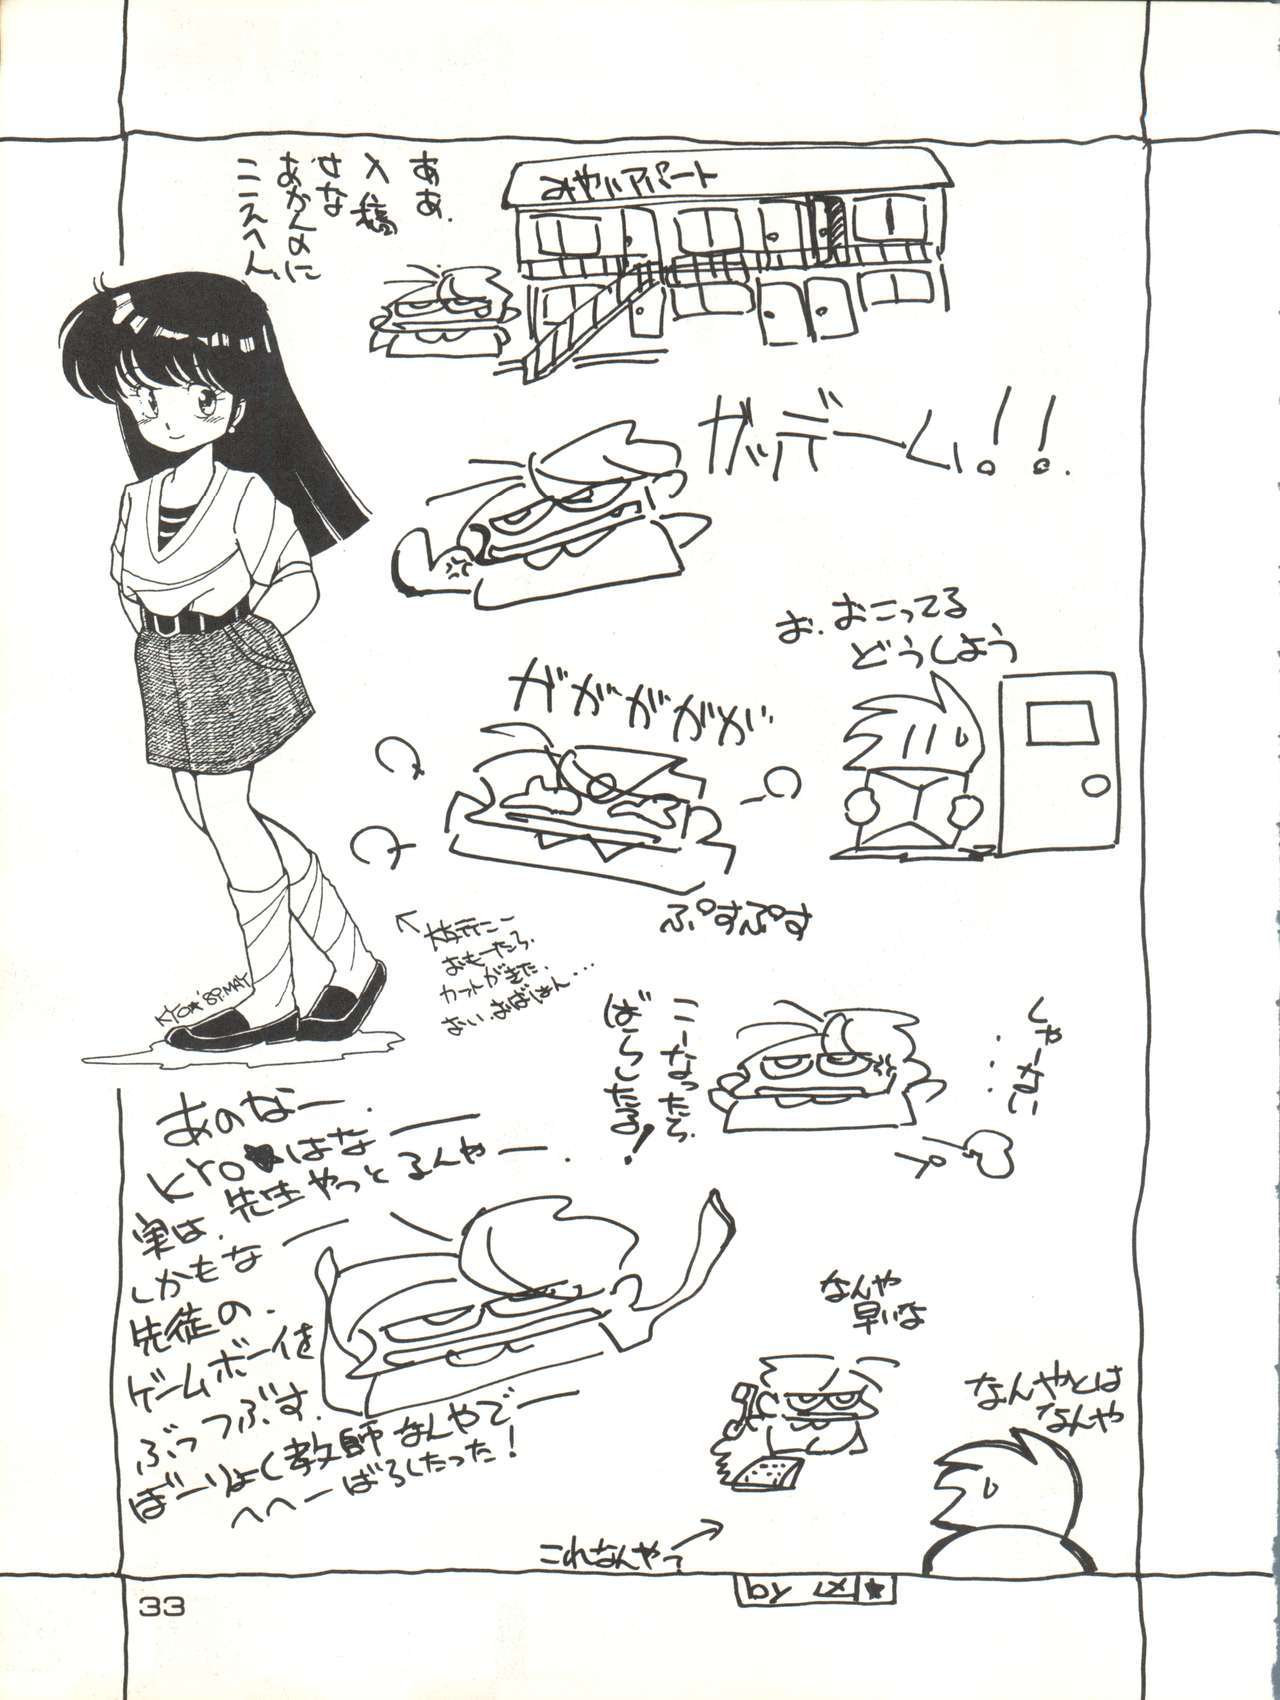 みやいアパート
ああ.
入稿
せな
あかんのに
ここえへん.
ガッデーム!!
お.おこってる
どうしよう
ガガガガガ
ぷすぷす
おもーたら.
カットがきた.
KYO★'89.MAY
しゃーない
・・・
こーなったら.
ばらしたる!
あのなー.
KYO★はなー
実は.先生やっとるんやー.
しかもなー
先徒の.
ゲームボーイを
ぶっつぶす.
ぼーりょく教師なんやでー
へへーばらしたった!
なんや
早いな
なんやとは
なんや
これなんや?
33